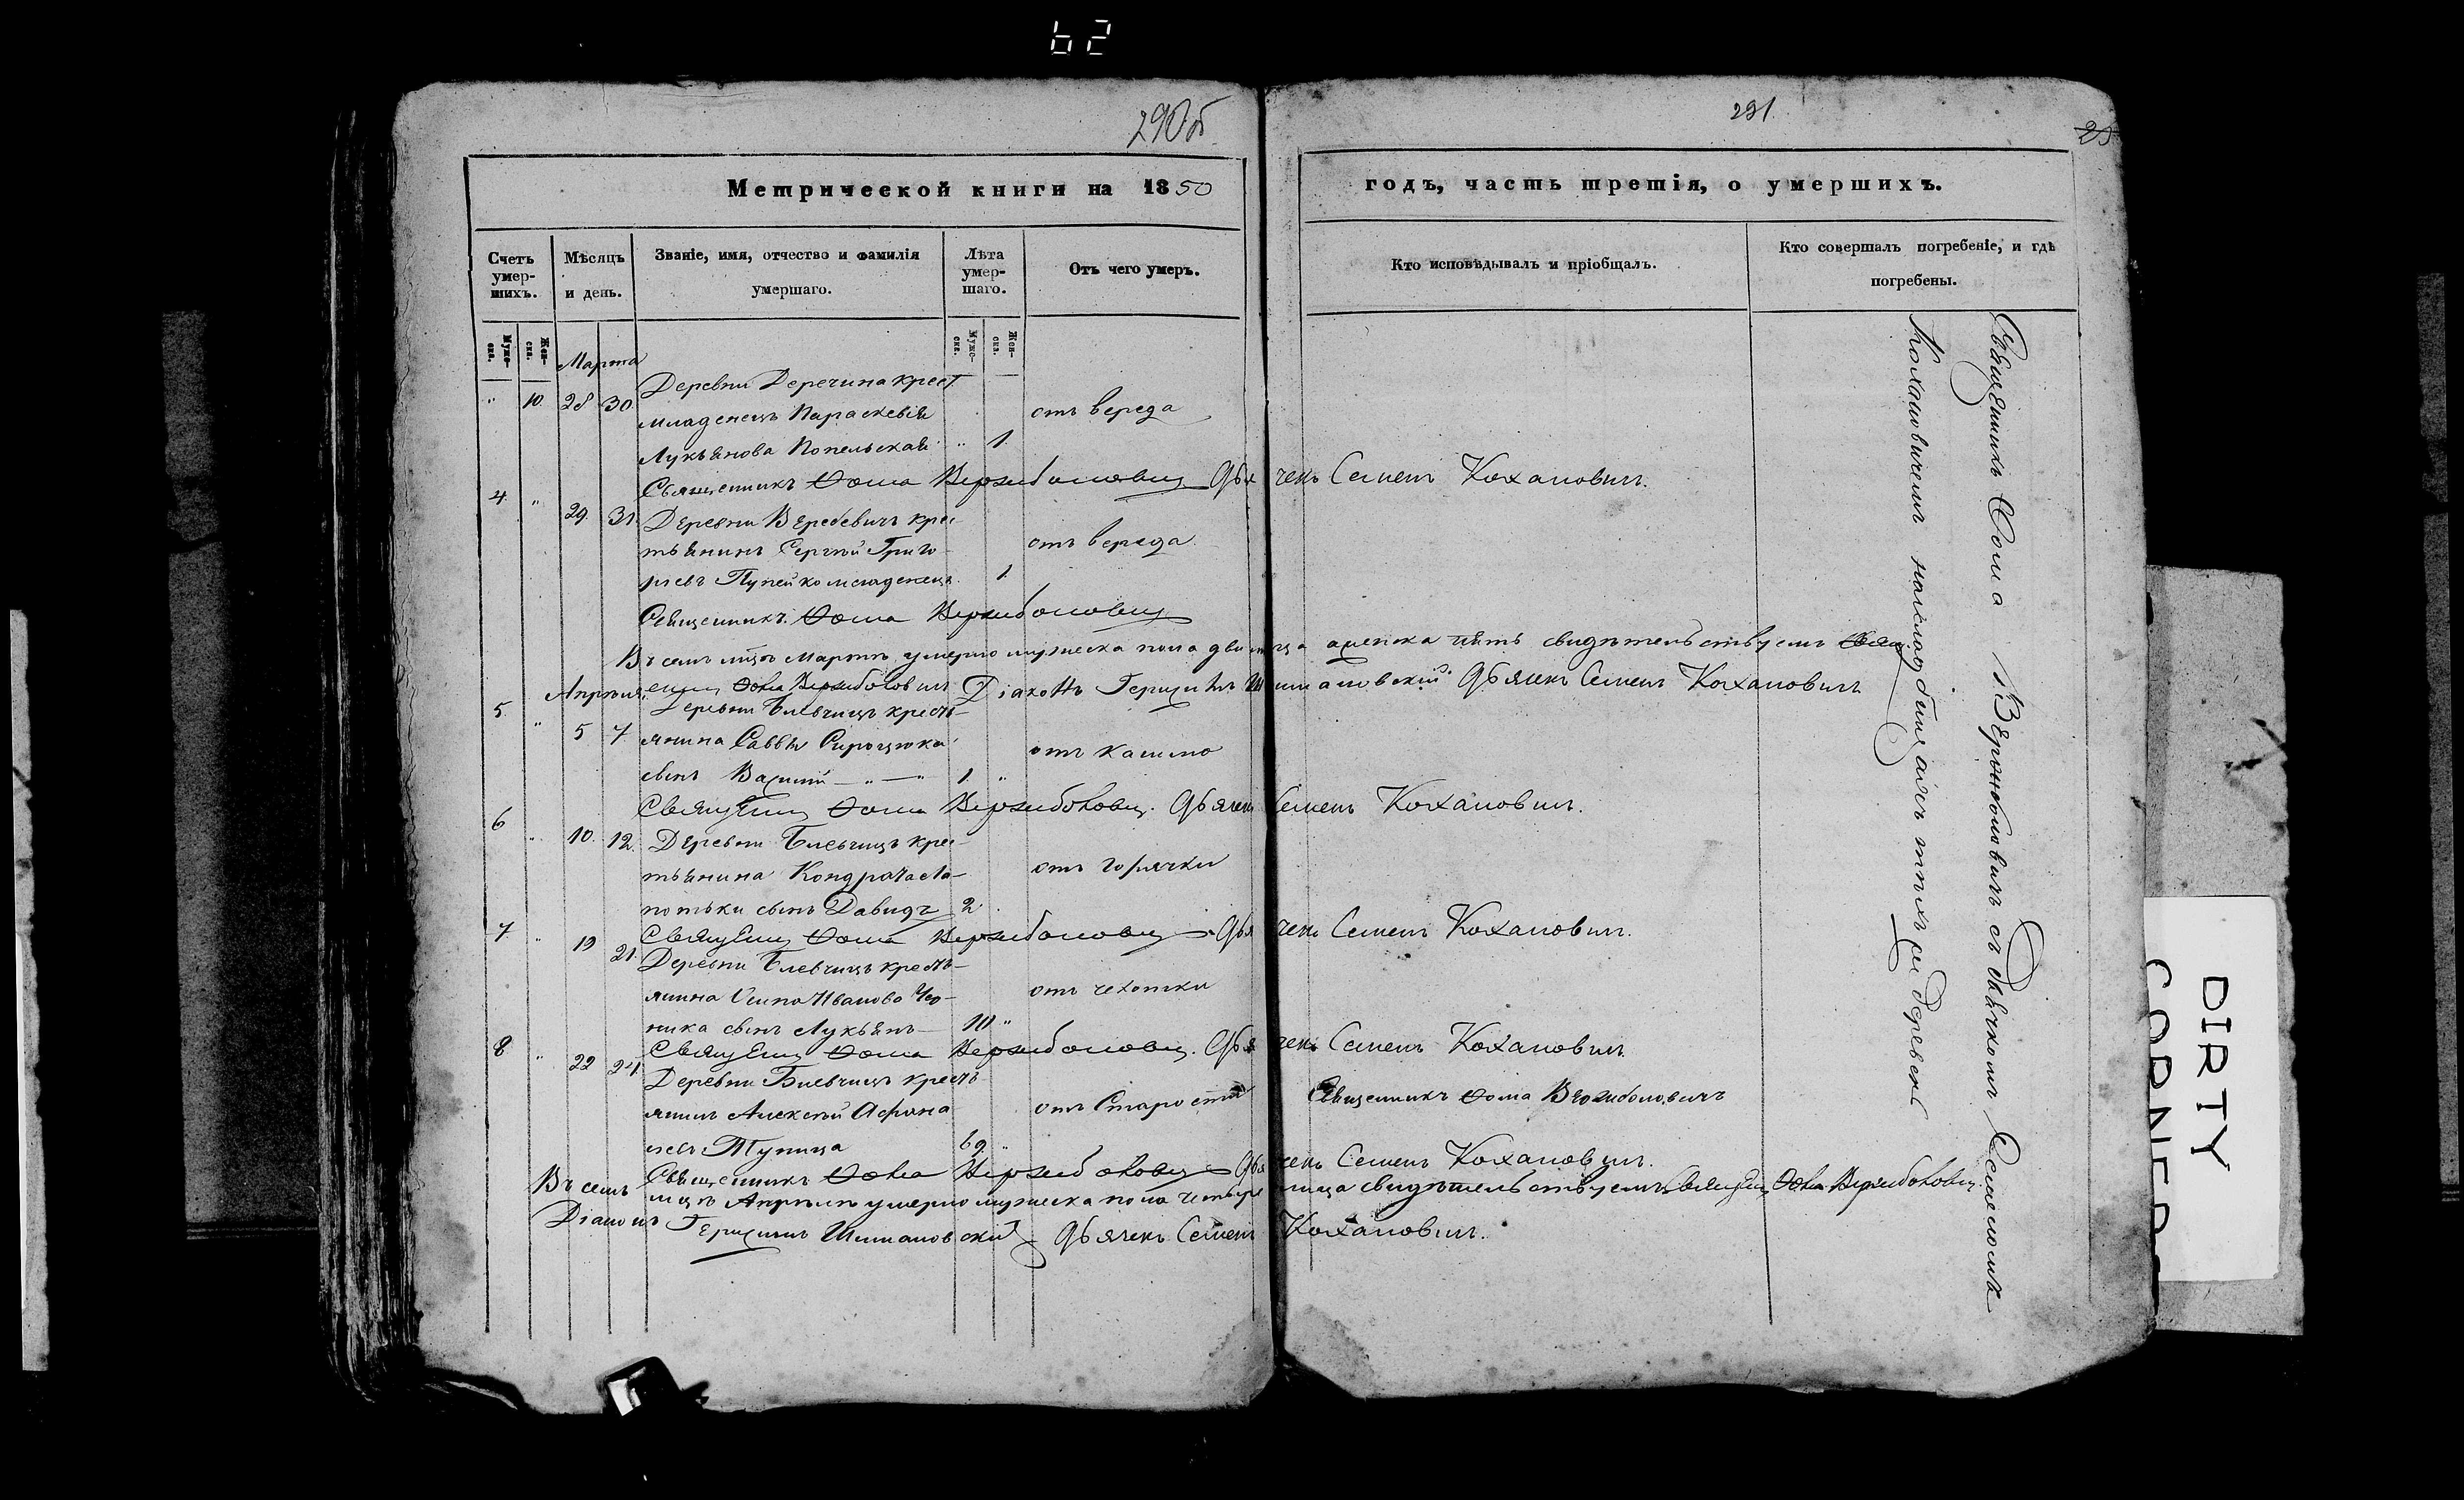 62
290об
291
Метрической книги на 1850
годъ, часть третія, о умершихъ.
Счетъ умер-шихъ.
Мѣсяцъ и день.
Званіе, имя, отчество и фамилія умершаго.
Лѣта умер-шаго.
Отъ чего умеръ.
Кто исповѣдывалъ и пріобщалъ.
Кто совершалъ погребеніе, и гдѣ погребены.
Муже-ска.
Жен-ска.
Муже-ска.
Жен-ска.
Марта
Деревни Деречина крест
" 10. 28 30 младенецъ Параскевія отъ вереда
Лукьянова Попельская " 1.
Священникъ Ѳома Вержболовичъ Дьячекъ Семенъ Кохановичъ.
4 " 29 31. Деревни Вересевичъ крес-
тьянинъ Сергѣй Григо- отъ вереда
рьевъ Пупейко младенецъ. 1.
Священникъ Ѳома Вержболовичъ
Въ семъ мцѣ Мартѣ умерло мужеска пола два лица а женска пять свидѣтельствуемъ Свящ
енникъ Ѳома Вержболовичъ Діаконъ Герасимъ Шимановскій Дьячекъ Семенъ Кохановичъ
Апрѣля
5. " 5 7 Деревни Блевчицъ кресть-
янина Саввы Сироцюка отъ кашлю
сынъ Василій — " — " 1. "
Священникъ Ѳома Вержболовичъ. Дьячекъ Семенъ Кохановичъ.
6 " 10. 12. Деревни Блевчицъ крес-
тьянина Кондрата Ла- отъ горячки
потьки сынъ Давидъ 2
Священникъ Ѳома Вержболовичъ Дьячекъ Семенъ Кохановичъ.
7. " 19 21. Деревни Блевчицъ кресть-
янина Осипа Иванова отъ чехотки
ника сынъ Лукьянъ — 10 "
Священникъ Ѳома Вержболовичъ. Дьячекъ Семенъ Кохановичъ
8 " 22 24. Деревни Блевчицъ кресть-
янинъ Алексѣй Афона отъ Старости Священникъ Ѳома Вержболовичъ
севъ Тупица 69. "
Священникъ Ѳома Вержболовичъ Дьячекъ Семенъ Кохановичъ.
Въ семъ мцѣ Апрѣлѣ умерло мужеска пола четыре лица свидѣтельствуемъ Священникъ Ѳома Вержболовичъ.
Діаконъ Герасимъ Шимановскій Дьячекъ Семенъ Кохановичъ.
Священникъ Ѳома Вержболовичъ съ Дьячкомъ Семеномъ
Кохановичемъ на кладбищахъ тѣхъ же деревень
DIRTY